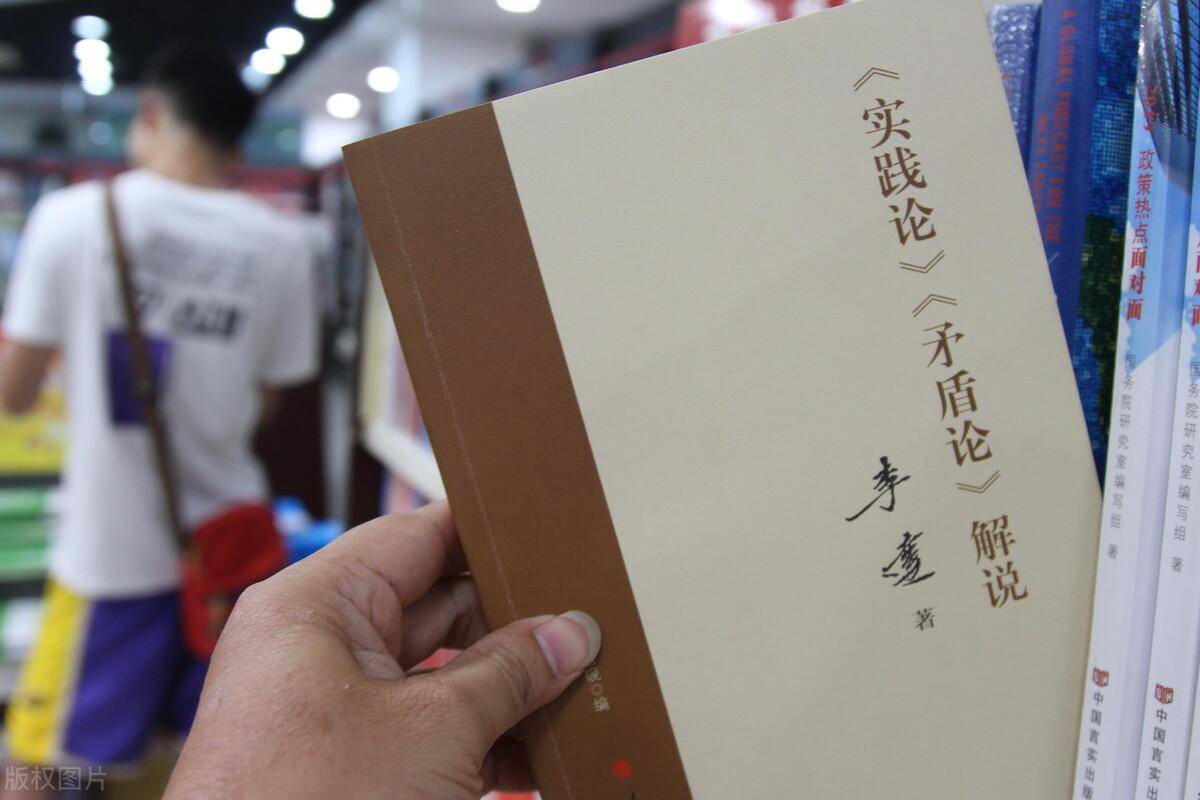 《实践论》《矛盾论》解说
李达
著
编
A GLOBAL FORECAST FOR THE
政策热点面对面
国务院研究室编写组 著
中国言实出版
国务院研究室编写组 著
中国言实出
版权图片